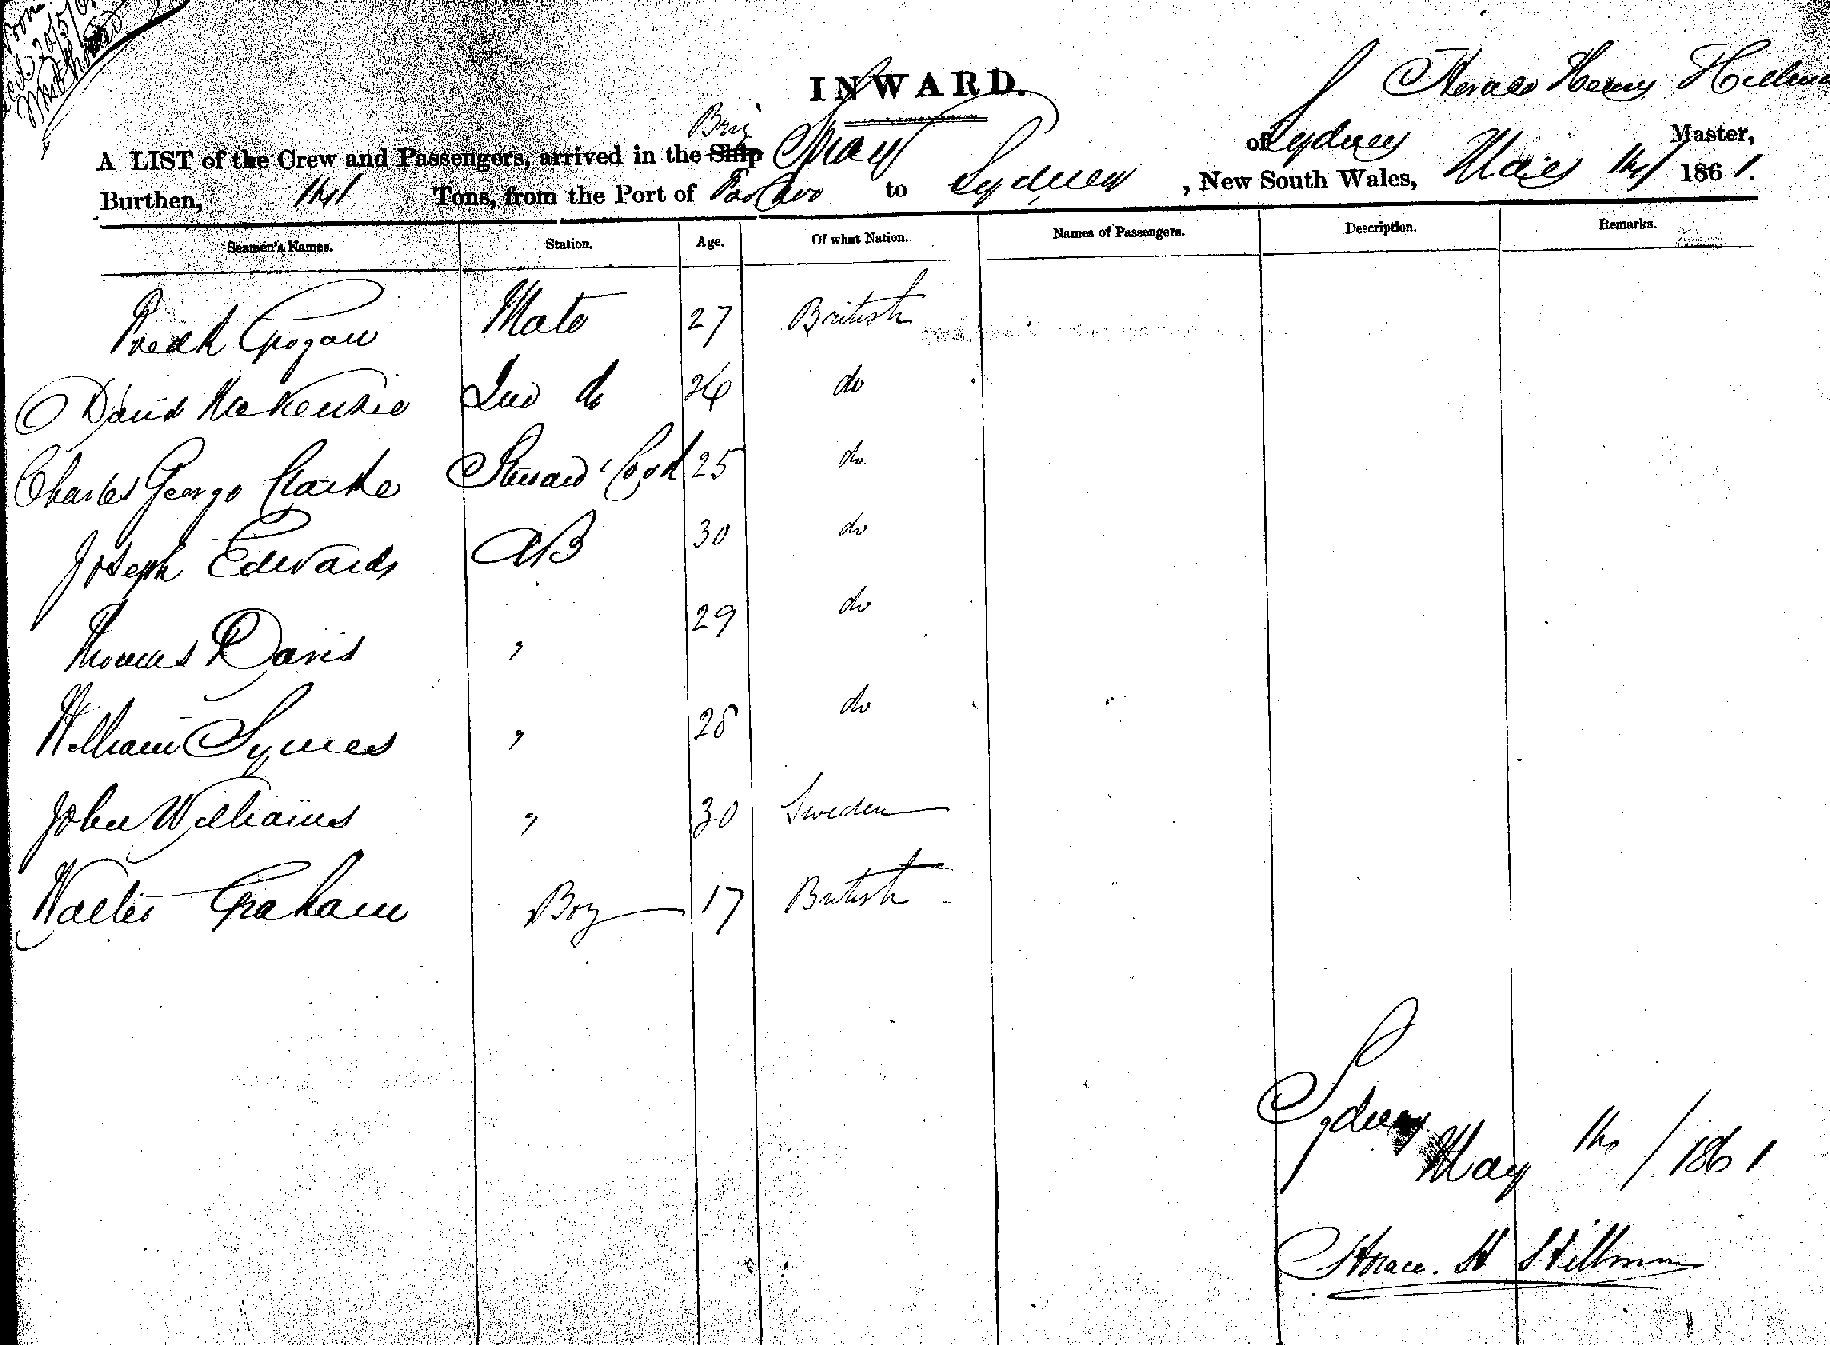 INWARD.
Horace Henry
A LIST of the Crew and Passengers, arrived in the Ship Brig Spray of Sydney Master,
Burthen, Tons, from the Port of to Sydney, New South Wales, 1861.
Seamen's Names. Station. Age. Of what Nation. Names of Passengers. Description. Remarks.
Fredk Grogan Mate 27 British
David McKenzie 2nd do 26 do
Charles George Clarke Steward & Cook 25 do
Joseph Edwards AB 30 do
Thomas Davis " 29 do
William Symes " 28 do
John Williams " 30 Sweden
Walter Graham Boy 17 British
Sydney
May /1861
Horace. H Hillman